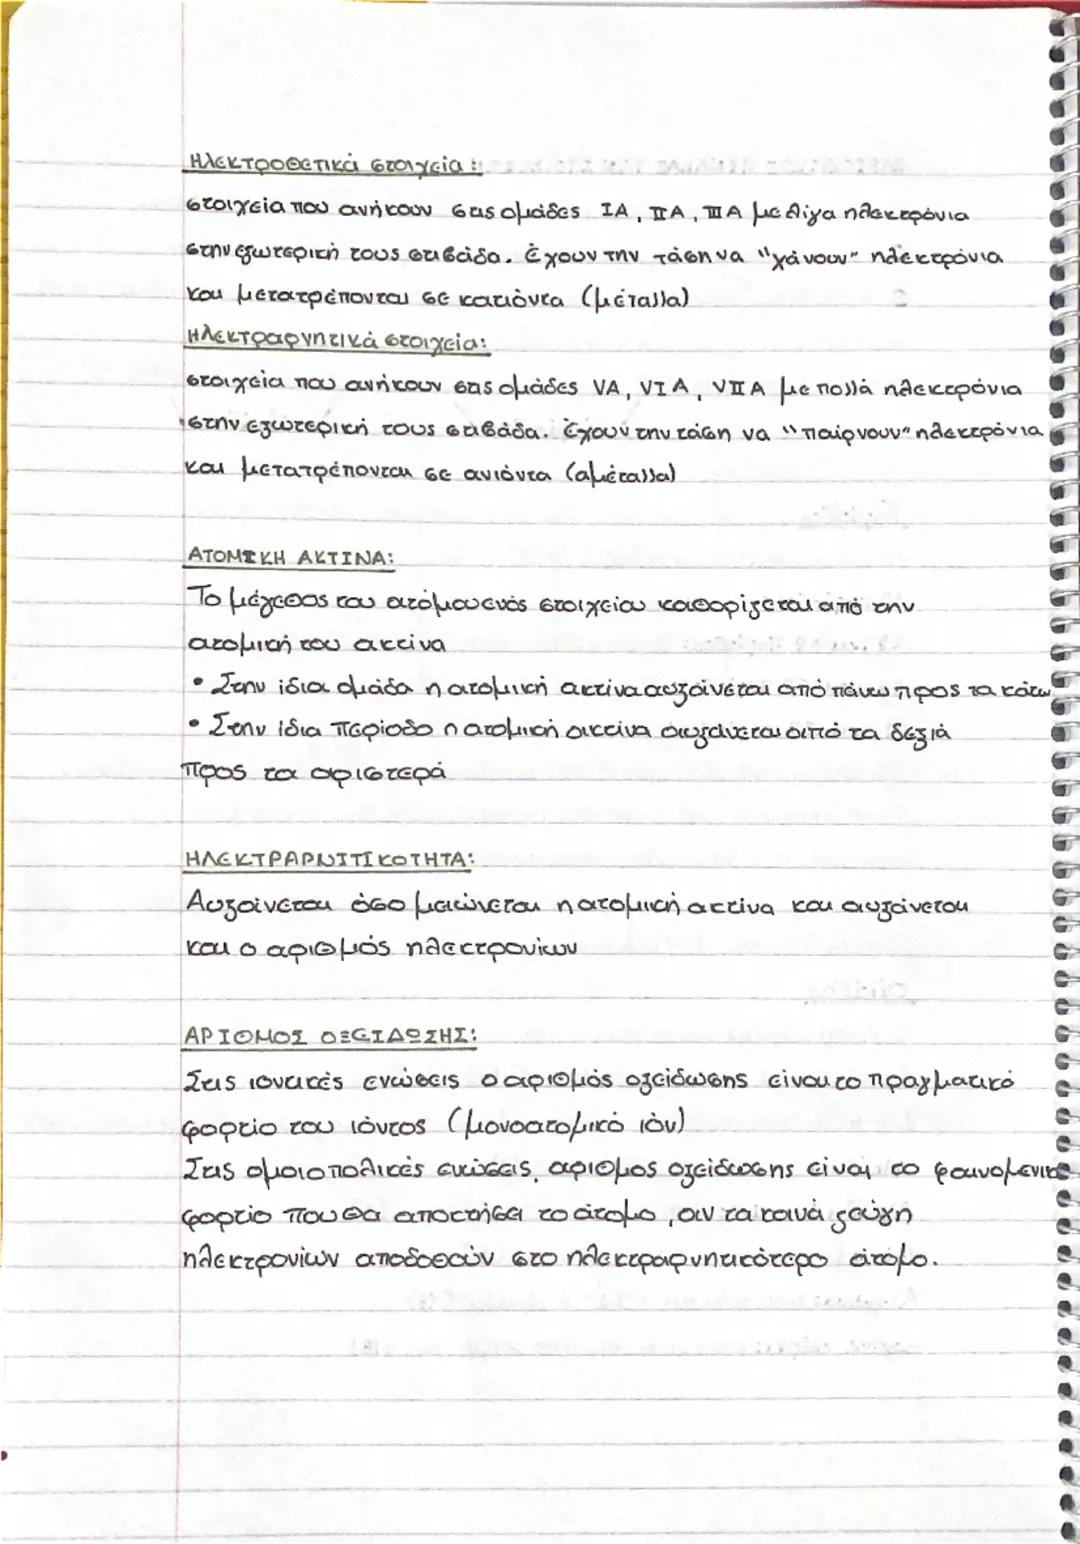 Ηλεκτροθετικά στοιχεία:
στοιχεία που ανήκουν στις ομάδες IA, IIA, IIIA με λίγα ηλεκτρόνια
στην εξωτερική τους στιβάδα. Έχουν την τάση να "χάνουν" ηλεκτρόνια
και μετατρέπονται σε κατιόντα (μέταλλα)
Ηλεκτραρνητικά στοιχεία:
στοιχεία που ανήκουν στις ομάδες VA, VIA, VIIA με πολλά ηλεκτρόνια
στην εξωτερική τους στιβάδα. Έχουν την τάση να "παίρνουν" ηλεκτρόνια
και μετατρέπονται σε ανιόντα (αμέταλλα)
ΑΤΟΜΙΚΗ ΑΚΤΙΝΑ:
Το μέγεθος του ατόμου ενός στοιχείου καθορίζεται από την
ατομική του ακτίνα
• Στην ίδια ομάδα η ατομική ακτίνα αυξάνεται από πάνω προς τα κάτω
• Στην ίδια περίοδο η ατομική ακτίνα αυξάνεται από τα δεξιά
προς τα αριστερά
ΗΛΕΚΤΡΑΡΝΙΤΙΚΟΤΗΤΑ:
Αυξαίνεται όσο μειώνεται η ατομική ακτίνα και αυξαίνεται
και ο αριθμός ηλεκτρονίων
ΑΡΙΘΜΟΣ ΟΞΕΙΔΩΣΗΣ:
Στις ιοντικές ενώσεις ο αριθμός οξείδωσης είναι το πραγματικό
φορτίο του ιόντος (μονοατομικό ιόν)
Στις ομοιοπολικές ενώσεις, αριθμός οξείδωσης είναι το φαινομενικό
φορτίο που θα αποκτήσει το άτομο, αν τα κοινά ζεύγη
ηλεκτρονίων αποδοθούν στο ηλεκτραρνητικότερο άτομο.